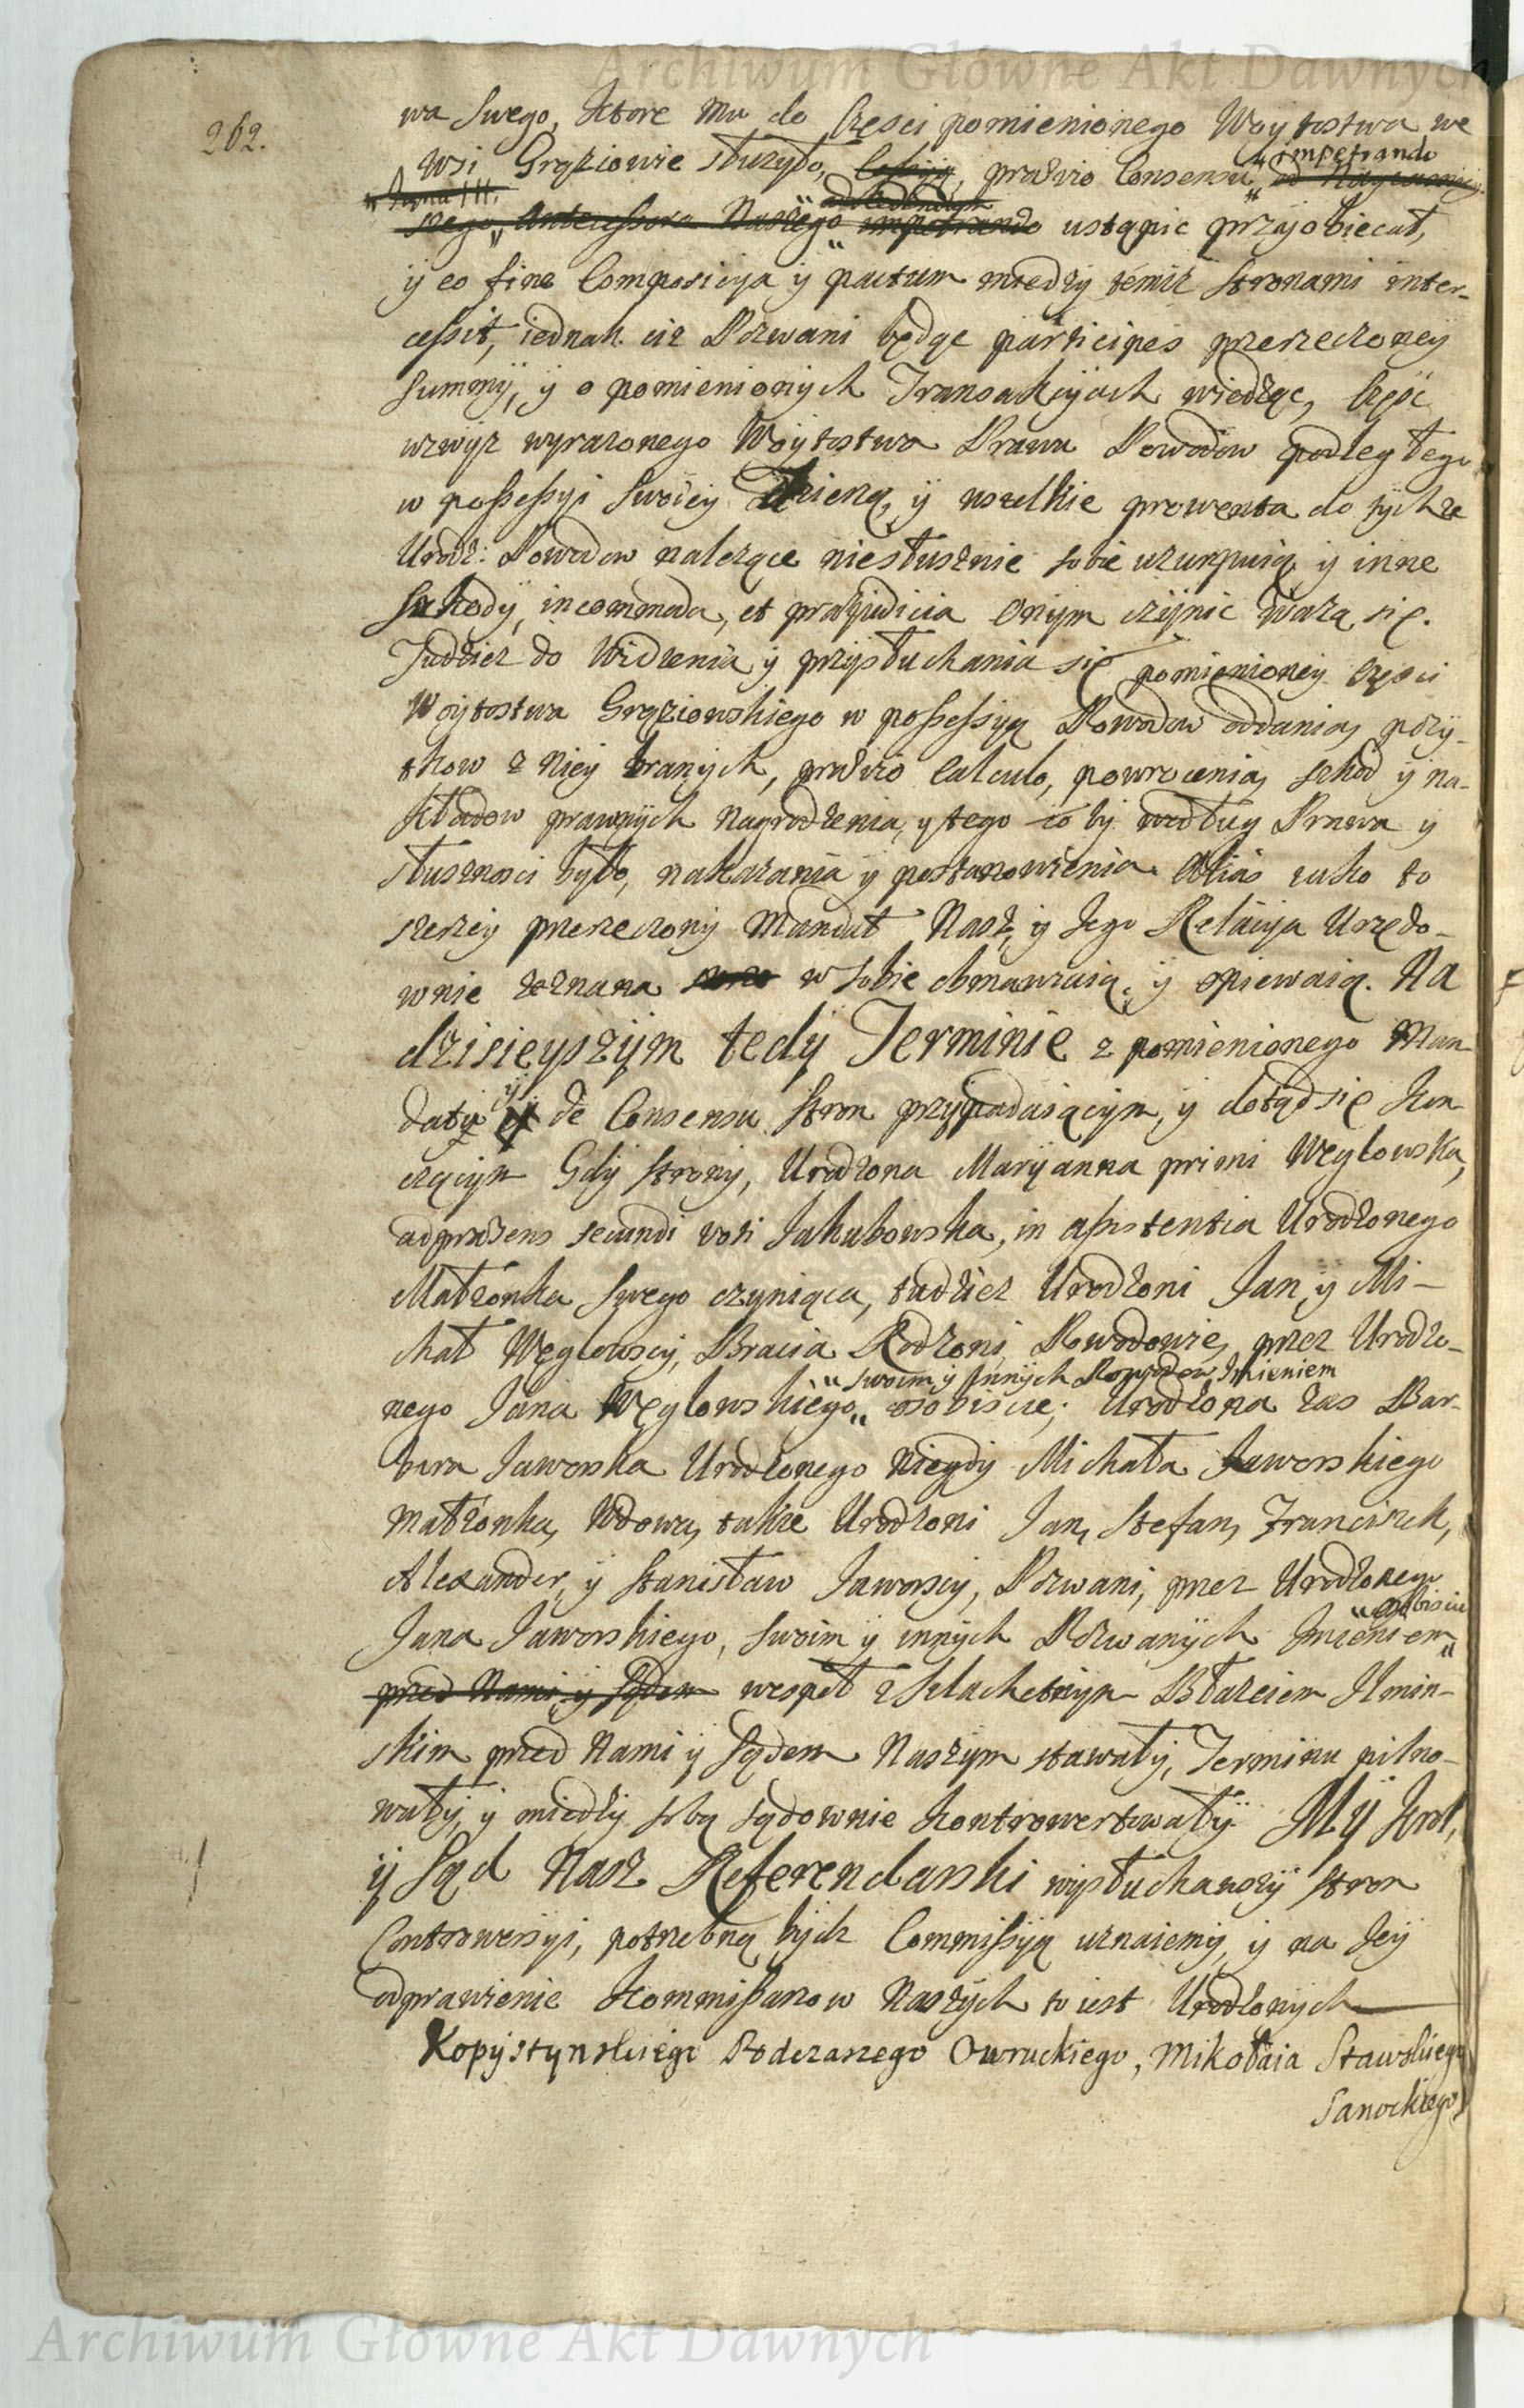 Archiwum Główne Akt Dawnych
262.
wa swego, ktore mu do części pomienionego Woytostwa we
impetrando
wsi Grąziowie służyło, cessyą, prævio Consensu od Nayiasniey-
Jana III.
szego Antecessora Naszego impetrando ustąpic przyobiecał,
ÿ eo fine Composicya ÿ pactum miedzy temiż Stronami inter-
cessit, iednak ciż Pozwani będąc participes przerzeczoneÿ
Summÿ, ÿ o pomienionych Transakcyach wiedząc, częśc
wzwÿż wyrażonego Woytostwa Prawu Powodow podległego
w possessyi swoiey dzierzą, ÿ wszelkie prowenta do tychże
Urodz: Powodow należące niesłusznie sobie uzurpuią, ÿ inne
szkodÿ, incommoda, et præjudicia onym czÿnic ważą się.
Tudziez do widzenia ÿ przysłuchania się pomienioney części
Woytostwa Grąziowskiego w possessyą Powodow oddania, pożÿ-
tkow z niey branych, prævio calculo, powrocenia, szkod ÿ na-
kładow prawnych nagrodzenia, y tego co by według Prawa ÿ
słusznosci było, nakazania ÿ postanowienia. Alias iako to
szerzey przerzeczony Mandat Nasz, ÿ Jego Relacya Urzędo-
wnie zeznana w sobie obmawiaią, ÿ opiewaią. Na
dzisieyszÿm tedÿ Terminie z pomienionego Man-
ÿ
datu de Consensu Stron przypadaiącym, ÿ dotąd się kon-
czącym Gdÿ Stronÿ, Urodzona Maryanna primi Węglowska,
ad præsens secundi voti Jakubowska, in assistentia Urodzonego
Małżonka swego czyniąca, tudziez Urodzeni Jan, ÿ Mi-
chał Węglowscy, Bracia Rodzeni, Powodowie, przez Urodzo-
swoim ÿ innych Powodow Imieniem
nego Jana Węglowskiego osobiscie; Urodzona zas Bar-
bara Jaworska Urodzonego niegdy Michała Jaworskiego
małżonka, wdowa, także Urodzeni Jan, Stefan, Franciszek,
Alexander, ÿ Stanisław Jaworscy, Pozwani, przez Urodzonego
osobiscie
Jana Jaworskiego, swoim ÿ innych Pozwanych Imieniem
przed Nami ÿ Sądem wespoł z Szlachetnym Błażeiem Ilmin-
skim przed Nami ÿ Sądem Naszym stawałÿ, Terminu pilno-
wałÿ, ÿ miedzy sobą sądownie kontrowertowałÿ. Mÿ Krol,
ÿ Sąd Nasz Referendarski wysłuchawszÿ Stron
Controwersyi, potrzebną bydz Commissyą uznaiemÿ, ÿ na Jeÿ
odprawienie Kommissarzow Naszÿch to iest Urodzonych
Kopystynskiego Podczaszego Owruckiego, Mikołaia Stawskiego
Sanockiego,
Archiwum Główne Akt Dawnych